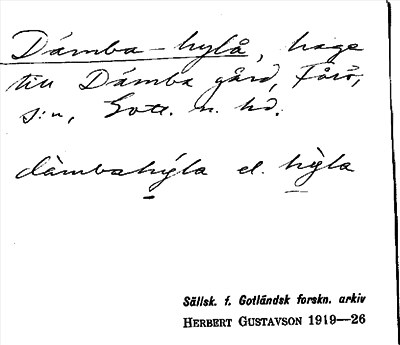 Dámba-hylå, hage
till Dámba gård, Fårö,
s:n, Gotl. n. hd.
dàmbahýla el. hỳla
Sällsk. f. Gotländsk forskn. arkiv
HERBERT GUSTAVSON 1919—26